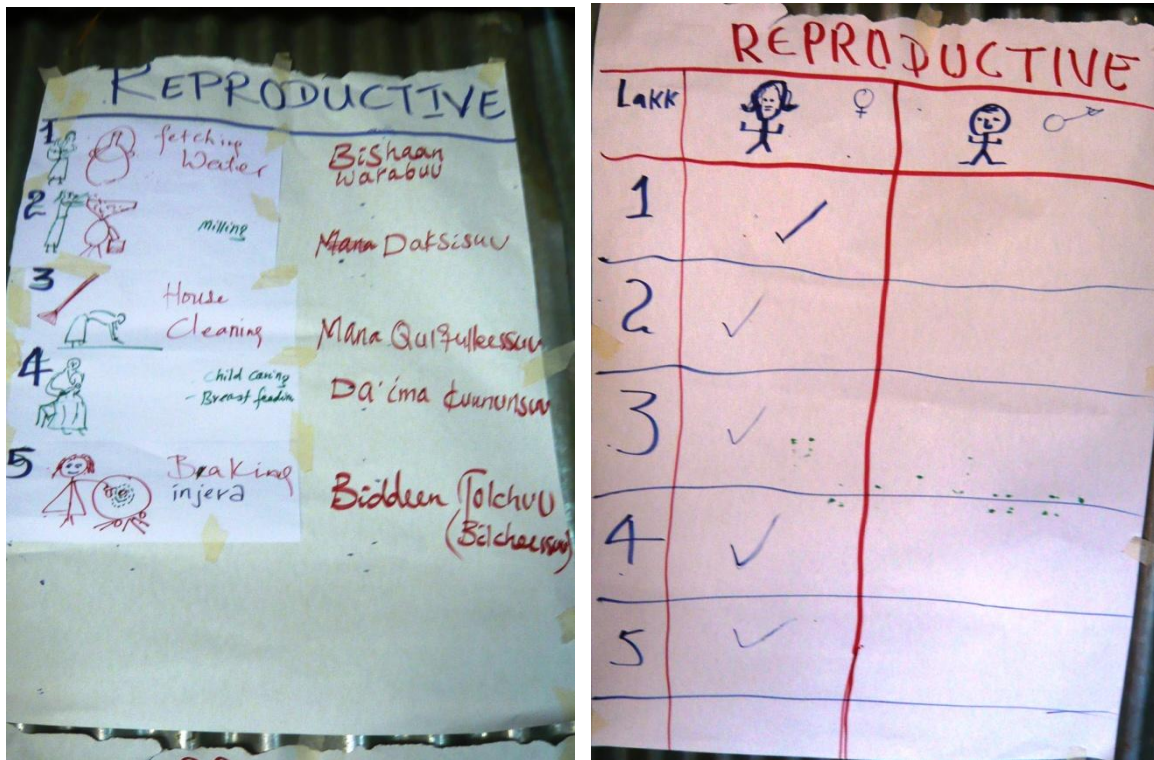 REPRODUCTIVE
1 fetching Water Bishaan warabuu
2 Milling Mana Daksisuu
3 House Cleaning Mana Qulqulleessuu
4 Child caring
- Breast feedin Da'ima
5 Baking injera Biddeen Tolchuu
(Bilcheessuu)
REPRODUCTIVE
Lakk ♀ ♂
1 ✓
2 ✓
3 ✓
4 ✓
5 ✓